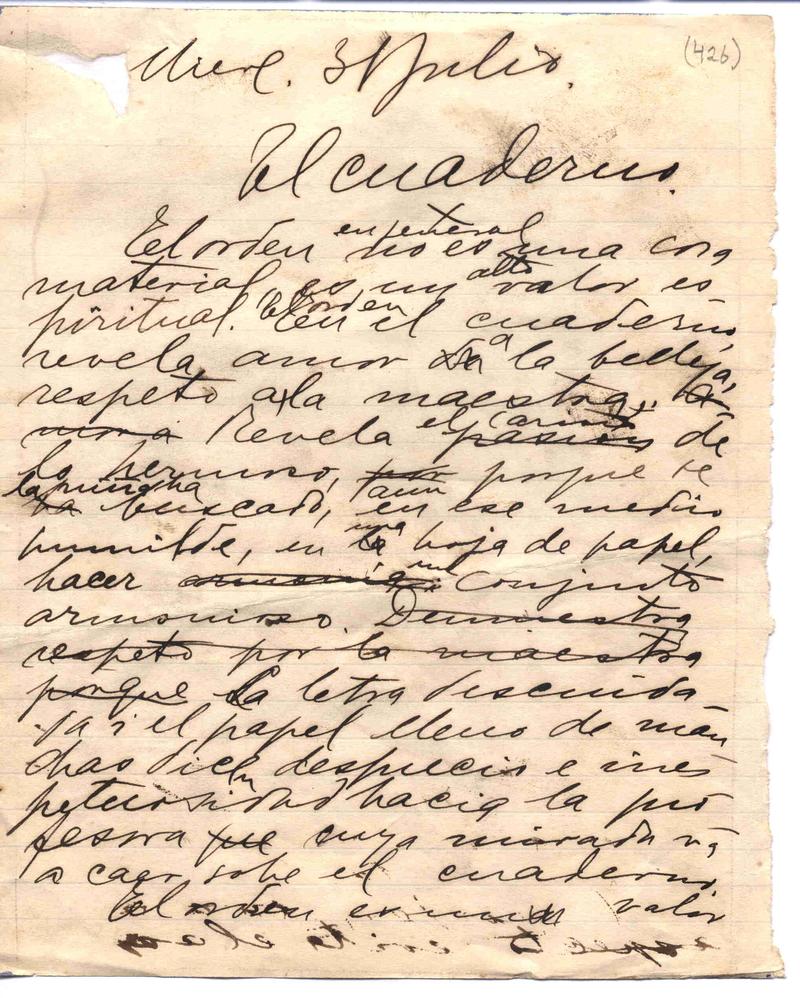 (426)
Mierc. 31 Julio.
El cuaderno.
El orden en jeneral no es una cosa
material, es un alto valor es
piritual. El orden En el cuaderno,
revela, amor a la belleza,
respeto a la maestra,
Revela el pasión de
lo hermoso, por porque se
la niña ha buscado, aun en ese medio
humilde, en una hoja de papel,
hacer armonía un conjunto
armonioso. Demuestra
respeto por la maestra
porque La letra descuida
da i el papel lleno de man
chas dicen desprecio e irres
petuosidad hacia la pro
fesora que cuya mirada va
a caer sobe el cuaderno.
El orden valor